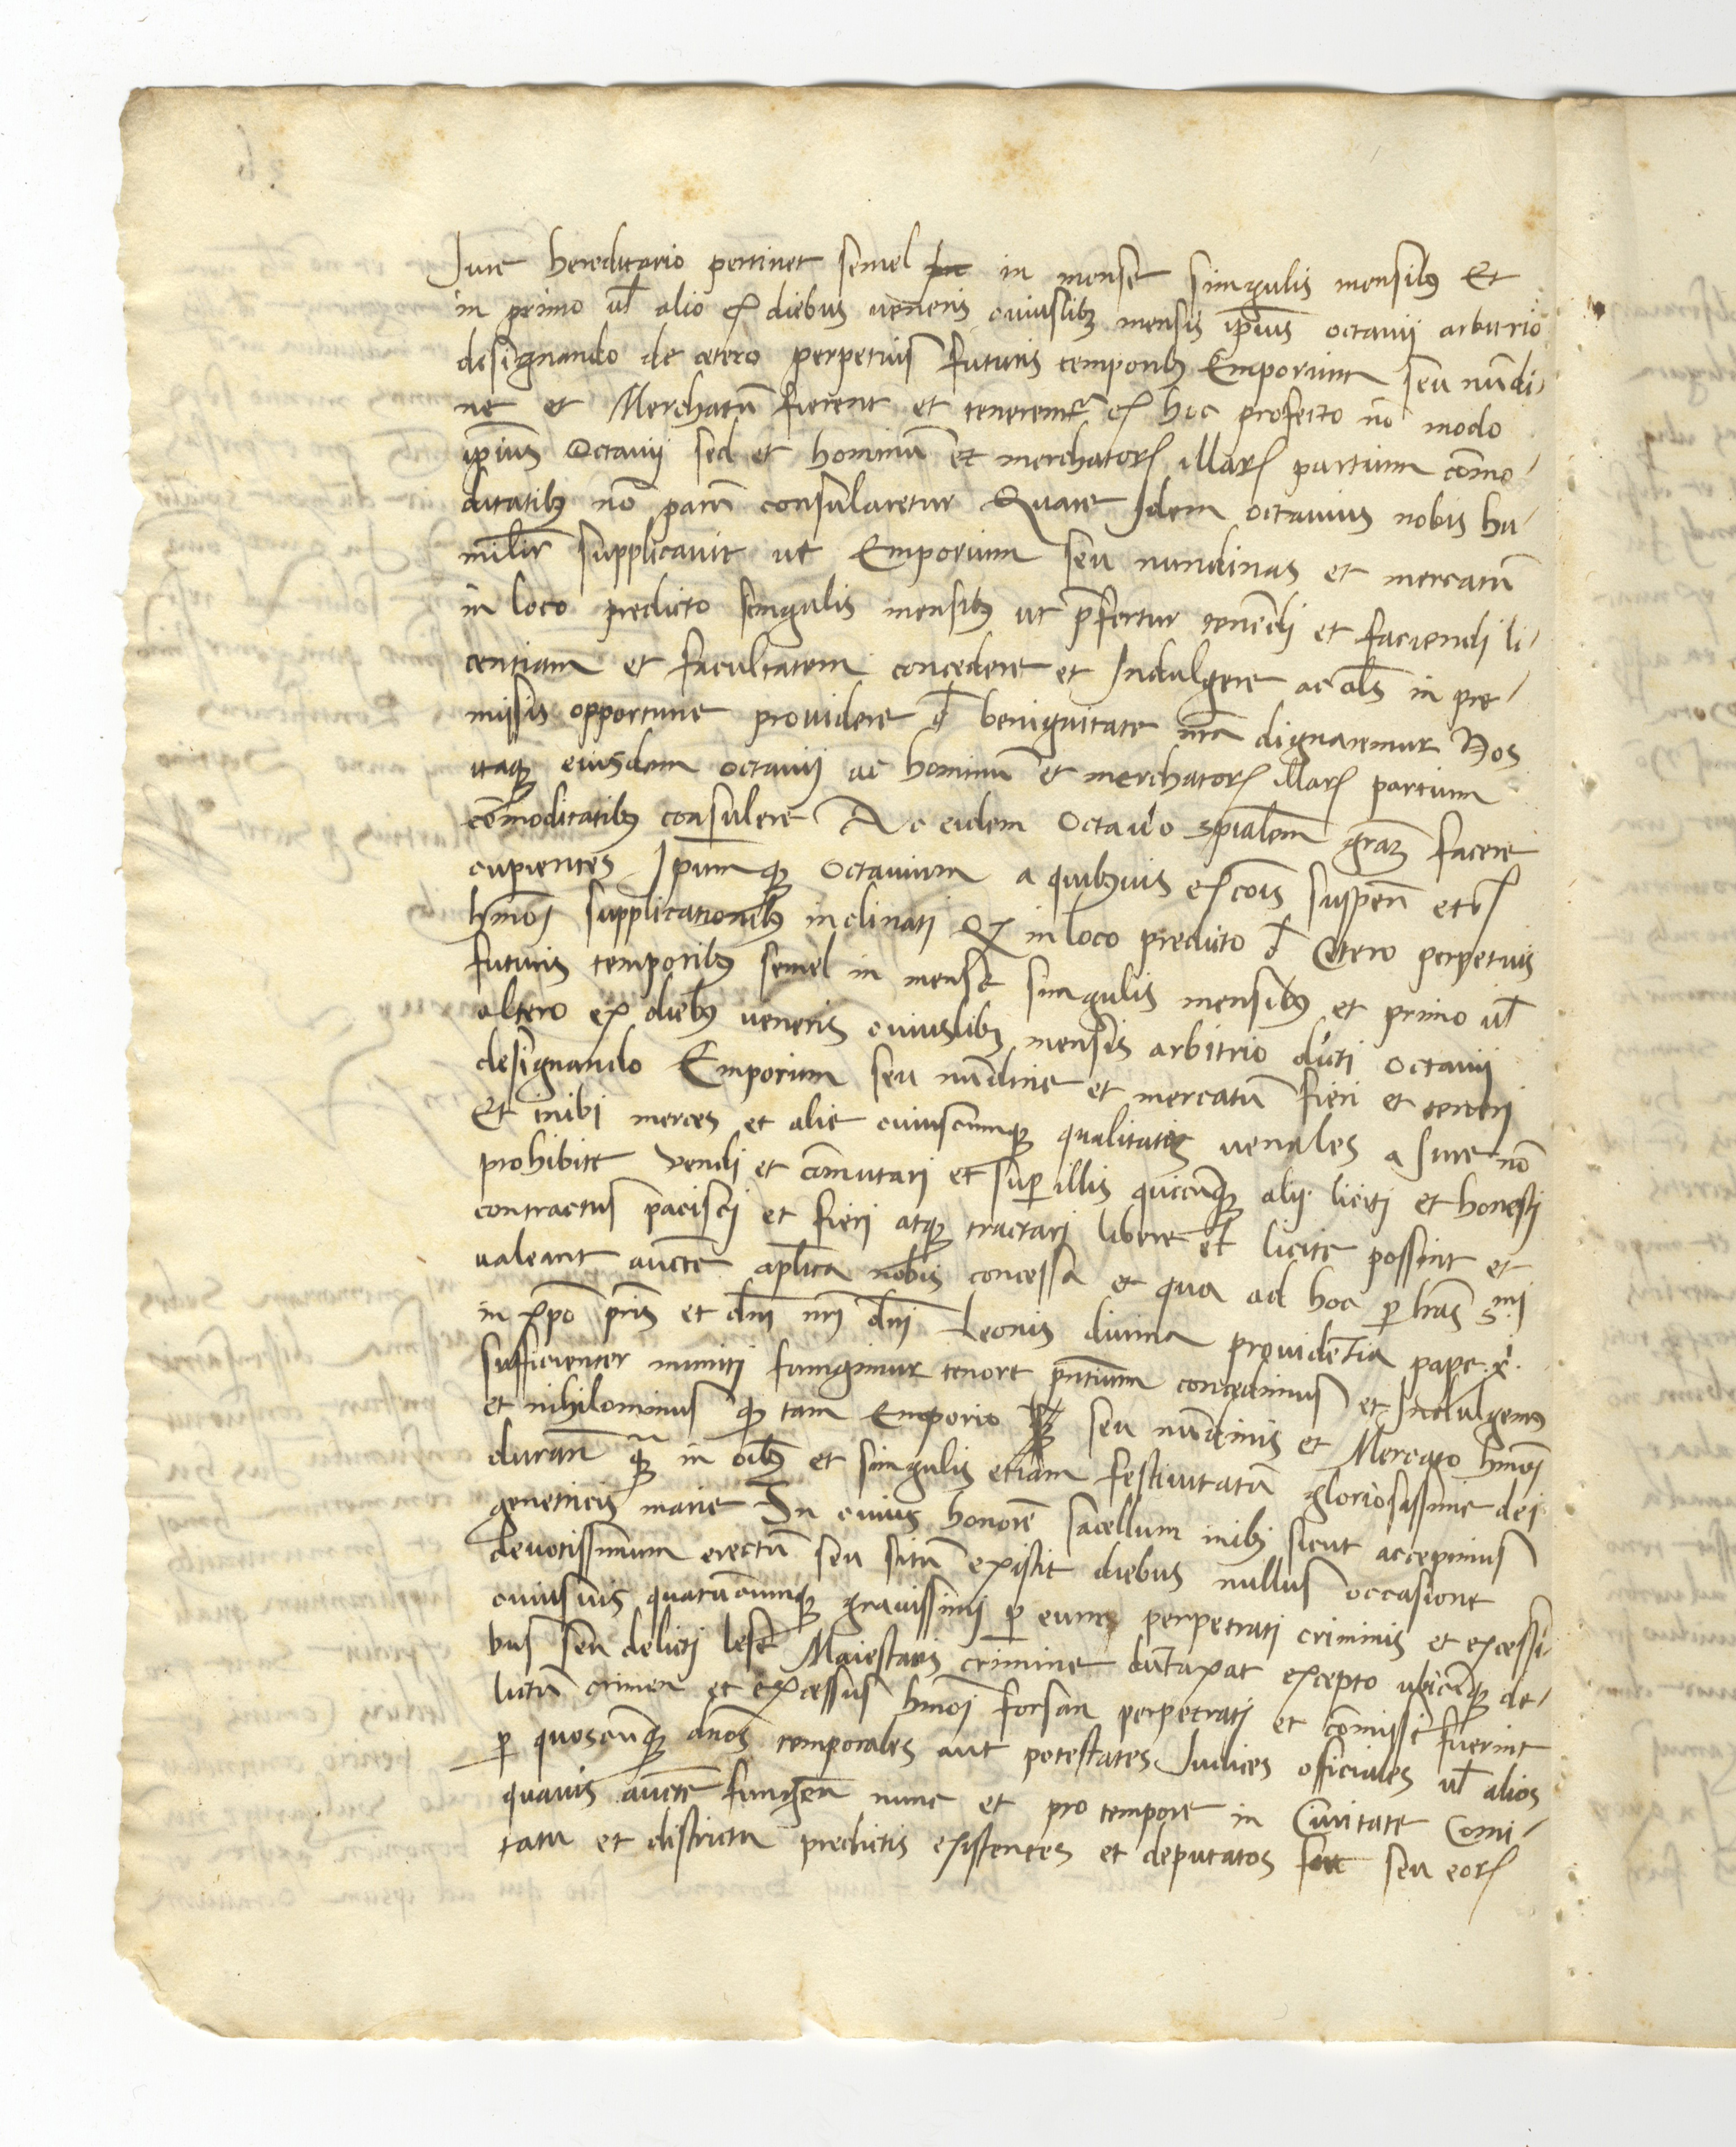 Jure hereditario pertinet semel in mense singulis mensibꝫ Et
in primo ul̄ alio ex diebus veneris cuiuslibꝫ mensis ip̄ius octavij arbitrio
designando de cetero perpetuis futuris temporibꝫ Emporium seu nūdi-
ne et Merchatū fierent et tenerent̄ ex hoc profecto nō modo
ip̄ius Octavij sed et hominū et merchatorꝝ illarꝝ partium cōmo-
ditatibꝫ nō parū consularetur Quare Idem octavius nobis hu-
milit̄r supplicavit ut Emporium seu nundinas et mercatū
in loco predicto singulis mensibꝫ ut p̄fertur tenēdj et faciendj li-
centiam et facultatem concedere et Indulgere ac al̄s in pre-
missis opportune providere d̄ benignitate nr̄a dignaremur Nos
itaqꝫ eiusdem octavij ac hominū et merchatorꝝ illarꝝ partium
cōmoditatibꝫ consulere Ac eidem Octavio sp̄ialem gr̄aꝫ facere
cupientes Ip̄umqꝫ Octavium a quibꝫvis excōis suspen̄ etcꝝ
hm̄oj supplicationibꝫ inclinatj Qꝫ in loco predicto d̄ Cetero perpetuis
futuris temporibꝫ semel in mense singulis mensibꝫ et primo ul̄
altero ex diebꝫ veneris cuiuslibꝫ mensis arbitrio dicti octavij
designando Emporium seu nūdine et mercatū fieri et tenerj
Et inibi merces et alie cuiuscumqꝫ qualitatis venales a Jure nō
prohibite vendi et cōmutarj et super illis quicūqꝫ alij liciti et honestj
contractus paciscj et fierj atqꝫ tractarj libere et licite possint et
valeant auctē ap̄lica nobis concessa et qua ad hoc ꝑ lr̄as S.mj
in xp̄o pr̄is et dn̄i nr̄j dn̄j Leonis divina providentia pape .x.
sufficienter munitj fungimur tenore pn̄tium concedimus et Indulgemꝫ
et nihilominus qꝫ tam Emporio seu nūdinis et Mercato hm̄oj
duran̄ qꝫ in oībꝫ et singulis etiam festivitatū gloriosissime dej
genetricis marie In cuius honorē sacellum inibj sicut accepimus
devotissimum erectū seu situ existit diebus nullus occasione
cuiusvis quantūcumqꝫ gravissimj ꝑ eum perpetratj criminis et excessi-
bus seu delicti lese Maiestatis crimine dūtaxat excepto ubicūqꝫ de-
lictū crimen et excessus hm̄oj forsan perpetratj et cōmissi fuerint
ꝑ quoscūqꝫ dn̄os temporales aut potestates Judices officiales ul̄ alios
quavis auctē fungen̄ nunc et pro tempore in Civitate Comi-
tatu et districtu predictis existentes et deputatos seu eorꝝ